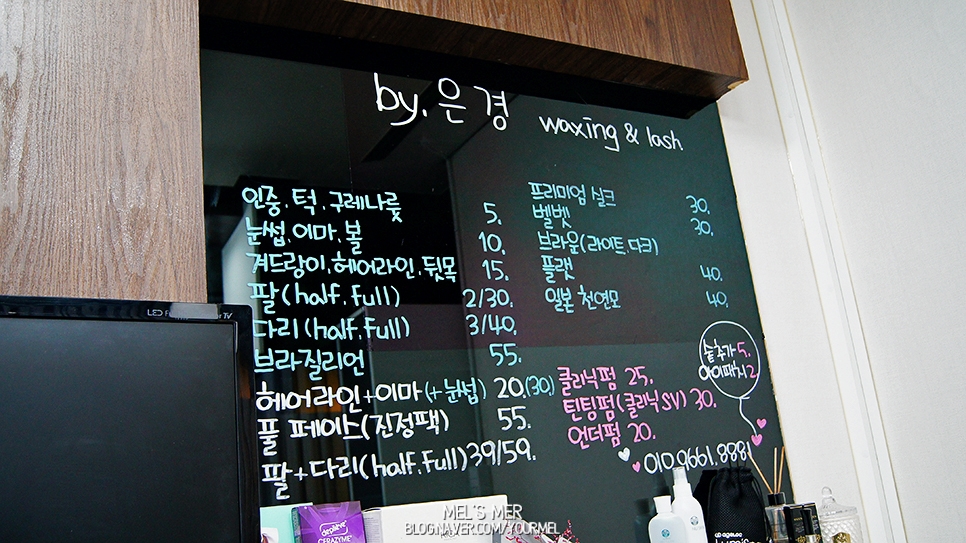 by. 은경 waxing & lash
인중.턱.구레나룻 5.
눈썹.이마.볼 10.
겨드랑이.헤어라인.뒷목 15.
팔(half.full) 2/30.
다리(half.full) 3/40.
브라질리언 55.
헤어라인+이마(+눈썹) 20.(30.)
풀 페이스(진정팩) 55.
팔+다리(half.full) 39/59.
프리미엄 실크 30.
벨벳 30.
브라운(라이트.다크)
플랫 40.
일본 천연모 40.
숱추가 5.
아이패치 2.
클리닉펌 25.
틴팅펌(클리닉SV) 30.
언더펌 20.
010.9661.8881
LED
TV
depilève
CERAZYME
MEL'S MER
BLOG.NAVER.COM/YOURMEL